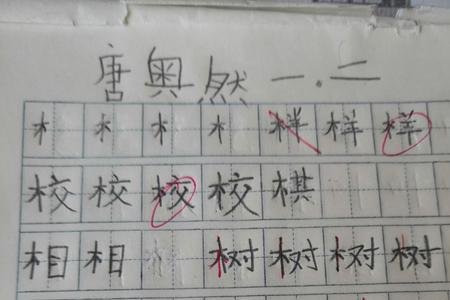 唐奥然 一.二
木 木 木 木 样 样 样
校 校 校 校 棋
相 相 树 树 树 树